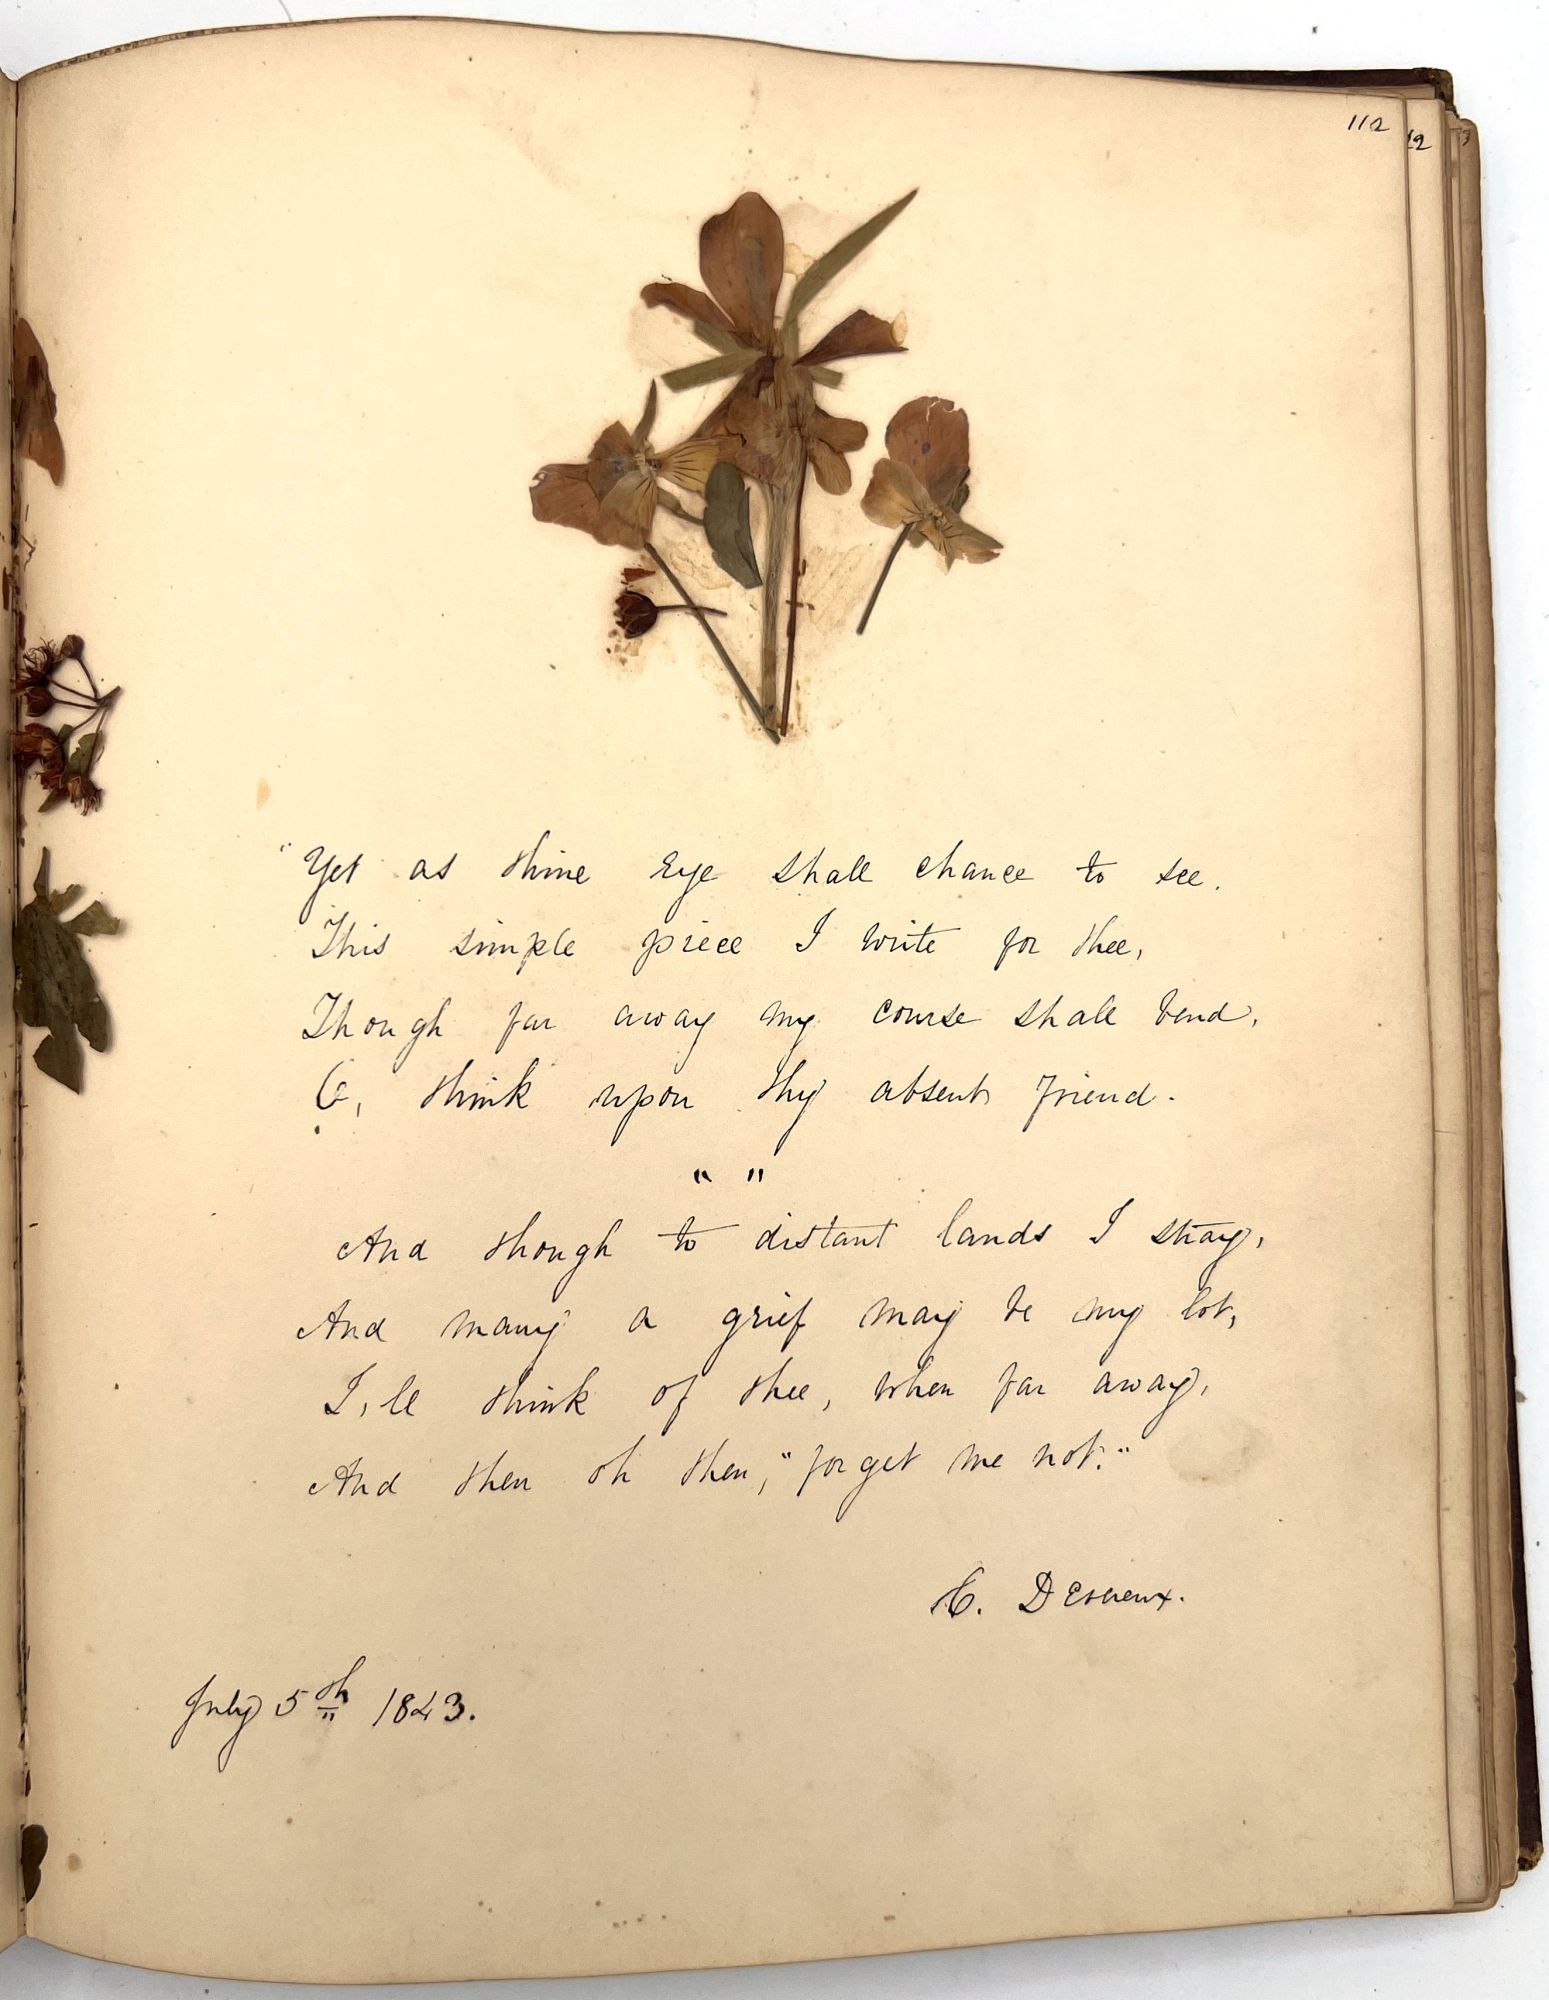 112
12
3
"Yet as thine Eye shall chance to see.
This simple piece I write for thee,
Though far away my course shall bend,
O, think upon thy absent friend.
" "
And though to distant lands I stray,
And many a grief may be my lot,
I,ll think of thee, when far away,
And then oh then, "forget me not."
C.
July 5th 1843.